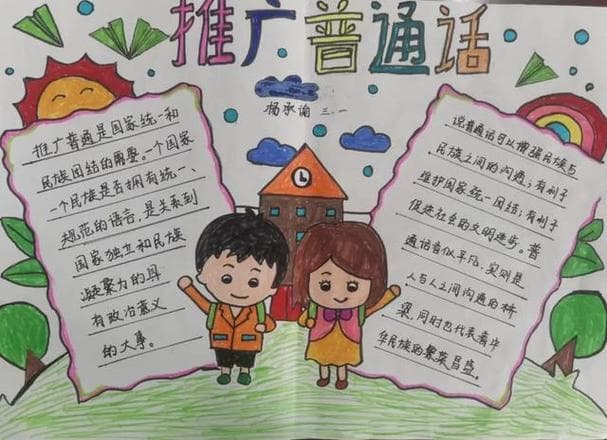 推广普通话
杨承谕 三.一
推广普通是国家统一和
民族团结的需要。一个国家
一个民族是否拥有统一、
规范的语言，是关系到
国家独立和民族
凝聚为的具
有政治意义
的大事。
说普通话可以增强民族与
民族之间的沟通；有利于
维护国家统一团结；有利于
促进社会的文明进步。普
通话看似平凡，实则是
人与人之间沟通的桥
梁，同时也代表着中
华民族的繁荣昌盛。